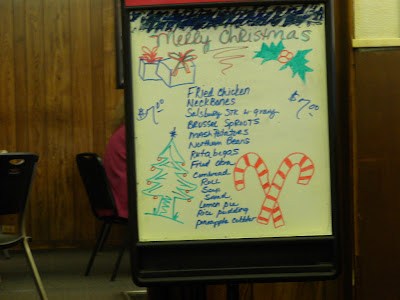 Merry Christmas
Fried chicken
Neckbones
$7.00
$7.00
Salsbury STK w gravy
BRUSSEL SPROUTS
MASH POTATOES
Northern Beans
Rutabagas
Fried okra
Cornbread
Rice
Soup
Salad
Lemon pie
Rice pudding
pineapple cobbler